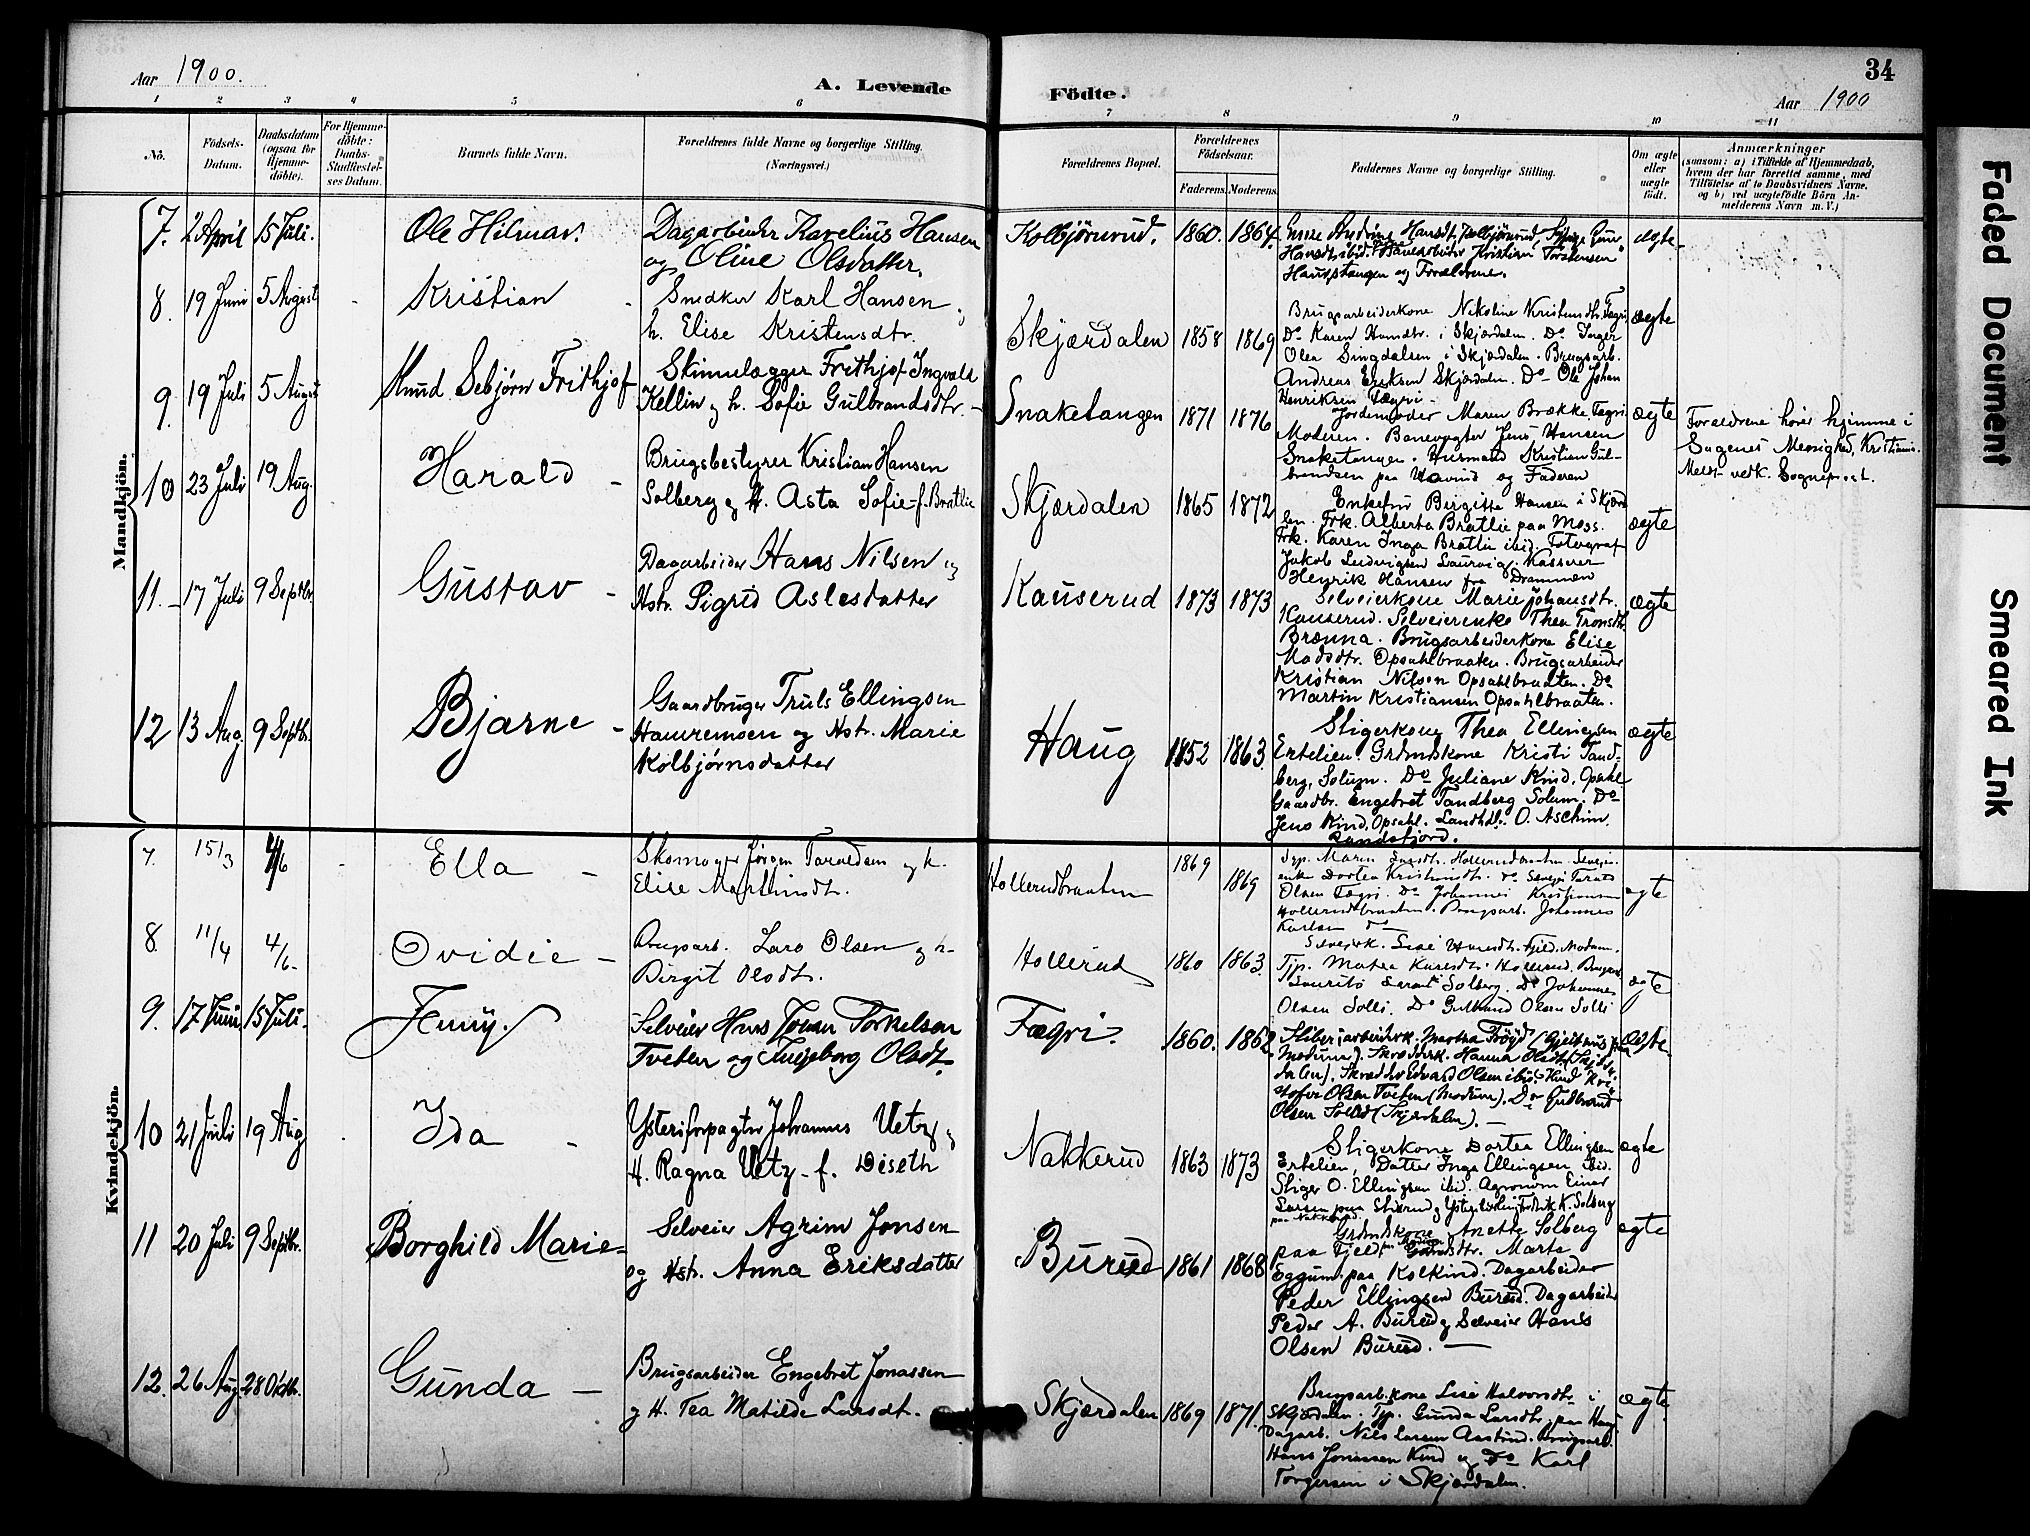 Aar 1900.
A. Levende
Födte.
34
Aar 1900
1 2 3 4 5 6 7 8 9 10 11
No.
Födsels-
Datum.
Daabsdatum
(ogsaa for
Hjemme-
döbte).
For Hjemme-
döbte:
Daabs-
Stadfæstel-
ses Datum.
Barnets fulde Navn.
Forældrenes fulde Navne og borgerlige Stilling.
(Næringsvei.)
Forældrenes Bopæl.
Forældrenes
Födselsaar.
Faderens. Moderens.
Faddernes Navne og borgerlige Stilling.
Om ægte
eller
uægte
födt.
Anmærkninger
(saasom: a) i Tilfælde af Hjemmedaab,
hvem der har forrettet samme, med
Tilföielse af to Daabsvidners Navne,
og b) ved uægtefödte Börn An-
melderens Navn m. V.)
Mandkjön.
7. 2 April 15 Juli. Ole Hilmar. Dagarbeider Karelius Hansen
og Oline Olsdatter.
Kolbjörnrud. 1860. 1864.
Hansdtr. ibid. Banearbeider Kristian Torstensen
Haugstangen og Forældrene.
ægte
8. 19 Juni 5 August Kristian Snedker Karl Hansen
h. Elise Kristensdtr.
Skjærdalen 1858 1869
Brugsarbeiderkone Nikoline Kristensdtr. Fægri
Do Karen Hansdtr. i Skjærdalen. Do Inger
Olea Singdalsen i Skjærdalen. Brugsarb.
Andreas Eriksen Skjærdalen. Do Ole Johan
Henriksen Fægri -
ægte
9. 19 Juli 5 August Knud Sebjørn Frithjof Skinnelægger Frithjof Ingvald
Kellin og h. Sofie Gulbrandsdtr. -
Snaketangen 1871 1876
Jordemoder Maren Brække Fægri.
Moderen. Banevogter Jens Hansen
Snaketangen. Husmand Kristian Gul-
brandsen paa Havind og Faderen
ægte
Forældrene hører hjemme i
Sagenes Menighed, Kristiania.
Meldt vedk. Sognepræst.
10 23 Juli 19 Aug. Harald - Brugsbestyrer Kristian Hansen
Solberg og H. Asta Sofie f. Bratlie
Skjærdalen 1865 1872
Enkefru Birgitte Hansen i Skjærda-
len. Frk. Alberta Bratlie paa Moss.
Frk. Karen Inga Bratlie ibid. Fotograf
Jakob Ludvigsen Laurvig. Kasserer
Henrik Hansen fra Drammen
ægte
11. - 17 Juli 9 Septbr. Gustav - Dagarbeider Hans Nilsen og
Hstr. Sigrid Aslesdatter
Kauserud 1873 1873
Selveierkone Marie Johansdtr.
Kauserud. Selveierenke Thea Tronsdtr.
Brænna. Brugsarbeiderkone Elise
Madsdtr. Opsahlbraaten. Brugsarbeider
Kristian Nilsen Opsahlbraaten. Do
Martin Kristiansen Opsahlbraaten.
ægte
12 13 Aug. 9 Septbr. Bjarne - Gaardbruger Truls Ellingsen
Hauremoen og Hstr. Marie
Kolbjørnsdatter
Haug 1852 1863.
Stigerkone Thea Ellingsen
Ertelien. Grdmdskone Kristi Tand-
berg, Solum. Do Juliane Kind, Opsahl
Gaardbr. Engebret Tandberg Solum. Do
Jens Kind, Opsahl. Landhdl. O. Aschim
Randsfjord.
ægte
Kvindekjön.
7. 15/3 4/6 Ella - Skomager Jørgen Taraldsen og h.
Elise Martinsdtr.
Hollerudbraaten 1869 1869
enke Dortea Kristiansdtr. Do
Olsen Fægri. Do Johannes Kristiansen
Hollerudbraaten. Brugsarb. Johannes
Karlsen do -
ægte
8. 11/4 4/6 - Ovidie - Brugsarb. Lars Olsen og h-
Birgit Olsdtr.
Hollerud 1860 1863.
Tjp. Hollerud.
Solberg. Do Johannes
Olsen Solli. Do Gulbrand Olsen Solli
ægte
9. 17 Juni 15 Juli. Jenny. Selveier Hans Johan Torkelsen
Tveten og Ingeborg Olsdt.
Fægri. 1860. 1862.
Skrædderk. Hanna Olsdtr. Skjær-
dalen). Skrædder Edvard Olsen ibid.
Olsen Tveten (Modum). Do Gudbrand
Olsen (Skjærdalen). -
ægte.
10 21 Juli 19 Aug Ida - Ysteriforpagter Johannes Uetz og
H. Ragna Uetz - f. Diseth
Nakkerud 1863 1873
Stigerkone Dortea Ellingsen
Ertelien, Datter Inga Ellingsen ibid.
Stiger O. Ellingsen ibid. Agronom Einar
Larsen paa
paa Nakkerud.
ægte
11 20 Juli 9 Septbr. Borghild Marie - Selveier Agrim Jonsen
og Hstr. Anna Eriksdatter
Burud 1861 1868
Grdmdskone Anette Solberg
paa Fjeld i Modum Gaardsdtr. Marte
Eggum paa Kolkind. Dagarbeider
Peder Ellingsen Burud. Dagarbeider
Peder A. Burud og Selveier Hans
Olsen Burud. -
ægte
12. 26 Aug. 28 Oktbr. Gunda - Brugsarbeider Engebret Jonassen
og H. Tea Matilde Larsdt.
Skjærdalen 1869 1871.
Brugsarb.kone Lise Halvorsdtr. i
Skjærdalen. Tjp. Gunda Larsdtr. paa Haug
Dagarb. Nils Larsen Aastind. Brugsarb.
Hans Jonassen Kind og Do Karl
Torgersen i Skjærdalen.
ægte
Faded Document
Smeared Ink